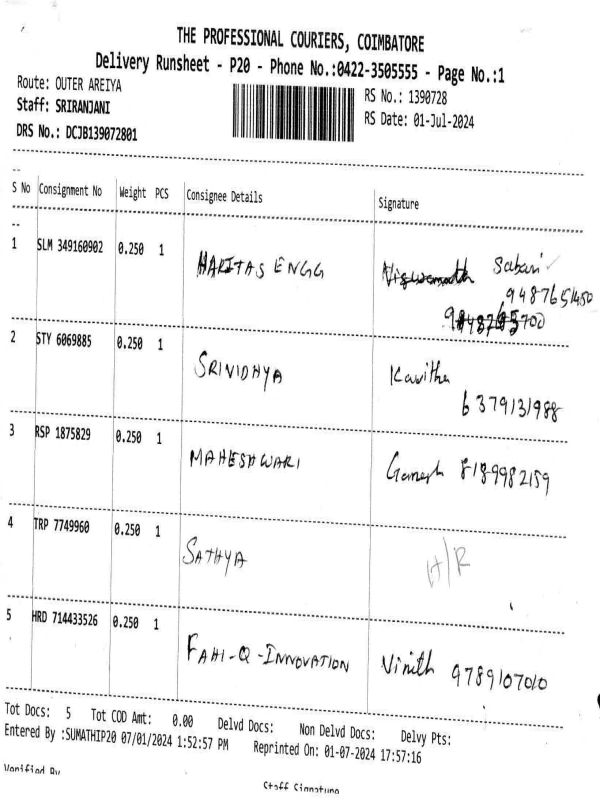 THE PROFESSIONAL COURIERS, COIMBATORE
Delivery Runsheet - P20 - Phone No.:0422-3505555 - Page No.:1
Route: OUTER AREIYA
RS No.: 1390728
Staff: SRIRANJANI
RS Date: 01-Jul-2024
DRS No.: DCJB139072801
S No Consignment No Weight PCS Consignee Details Signature
1 SLM 349160902 0.250 1 HARITAS ENGG Sabari
9487651450
2 STY 6069885 0.250 1 SRIVIDHYA Kavitha
6379131988
3 RSP 1875829 0.250 1 MAHESHWARI Ganesh 8189982159
4 TRP 7749960 0.250 1 SATHYA H/R
5 HRD 714433526 0.250 1 FAHI-Q-INNOVATION Vinith 9789107010
Tot Docs: 5 Tot COD Amt: 0.00 Delvd Docs: Non Delvd Docs: Delvy Pts:
Entered By :SUMATHIP20 07/01/2024 1:52:57 PM Reprinted On: 01-07-2024 17:57:16
Verified By
Staff Signature